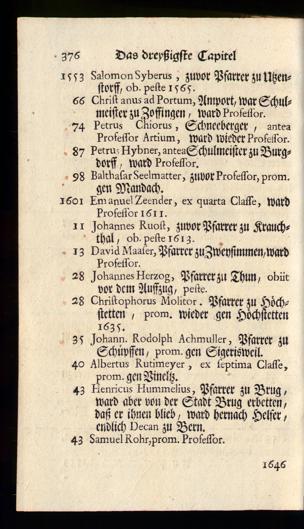 376 Das dreyßigste Capitel
1553 Salomon Syberus, zuvor Pfarrer zu Utzen-
storff, ob. peste 1565.
66 Christ anus ad Portum, Anwort, war Schul-
meister zu Zoffingen, ward Professor.
74 Petrus Chiorus, Schneeberger, antea
Professor Artium, ward wieder Professor.
87 Petrus Hybner, antea Schulmeister zu Burg-
dorff, ward Professor.
98 Balthasar Seelmatter, zuvor Professor, prom.
gen Mandach.
1601 Emanuel Zeender, ex quarta Classe, ward
Professor 1611.
11 Johannes Ruost, zuvor Pfarrer zu Krauch-
thal, ob. peste 1613.
13 David Maaser, Pfarrer zu Zweysimmen, ward
Professor.
28 Johannes Herzog, Pfarrer zu Thun, obiit
vor dem Auffzug, peste.
28 Christophorus Molitor. Pfarrer zu Höch-
stetten, prom. wieder gen Höchstetten
1635.
35 Johann. Rodolph Achmuller, Pfarrer zu
Schüpffen, prom. gen Sigerisweil.
40 Albertus Rutimeyer, ex septima Classe,
prom. gen Vineltz.
43 Henricus Hummelius, Pfarrer zu Brug,
ward aber von der Stadt Brug erbetten,
daß er ihnen blieb, ward hernach Helfer,
endlich Decan zu Bern.
43 Samuel Rohr, prom. Professor.
1646